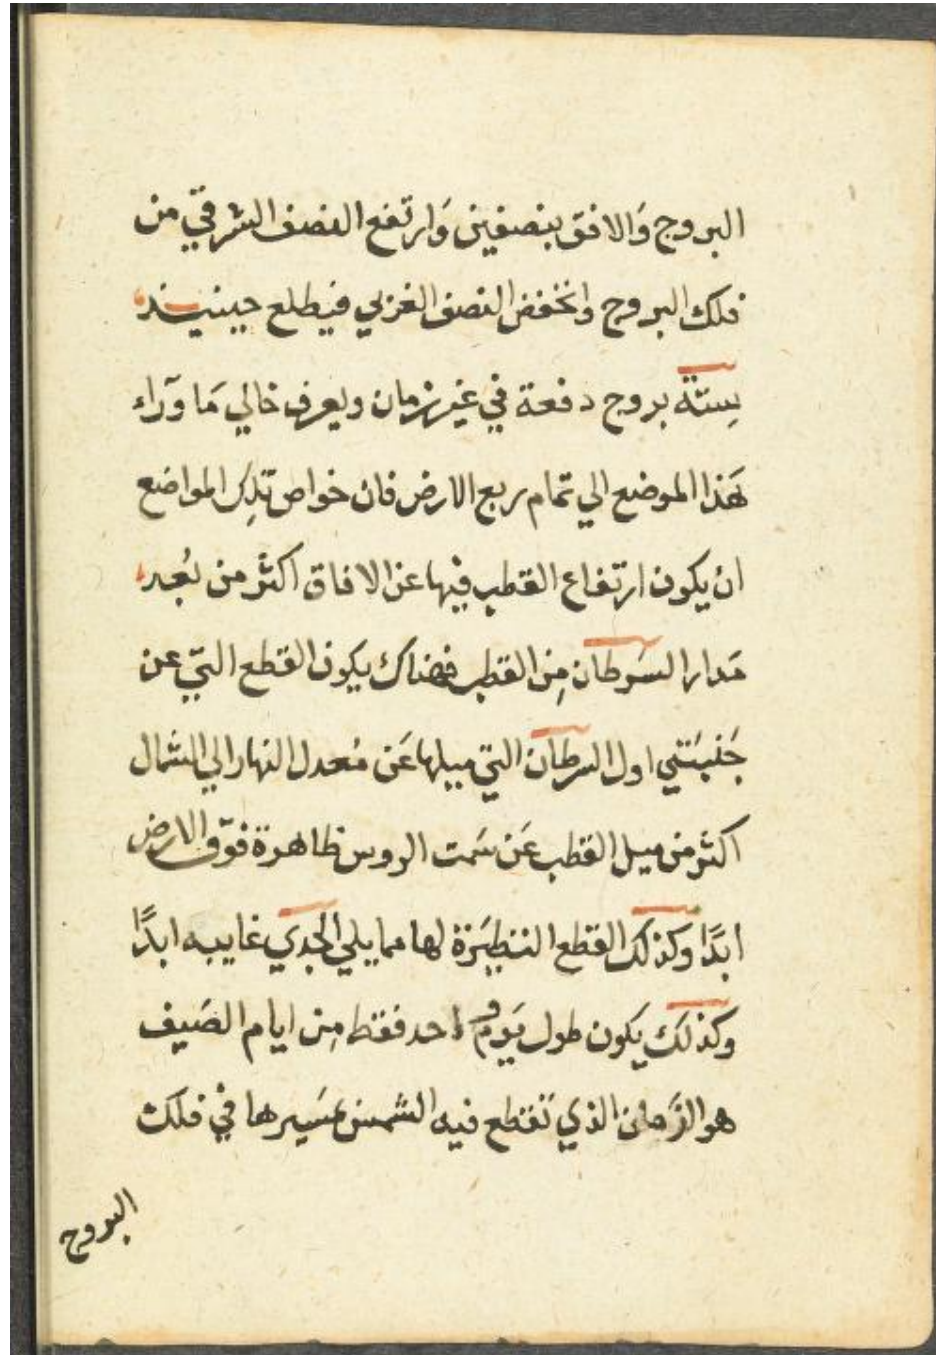 البروج وَالافق بنصفين وَارتفع النصف الشرقيّ من
فلك البروج وانخفض النصف الغربي فيطلع حينيـــذ
سِتّة بروج دفعة في غير زمان ويعرف خالي مَا ورَاء
هَذا الموضع الي تمام ربع الارض فان خواص تلك المواضع
انْ يكون ارتفاع القطب فيها عن الافاق اكثر من بُعد
مَدار السَرطان مِن القطب فهناك يكون القطع التيّ عن
جَنبَتَيي اول السرطان التي ميلها عَن مُعدل النهار الي الشمال
اكثر من ميل القطب عَن سَمت الروس ظاهرة فوَق الارض
ابدًا وكذلك القطع النظيَرة لها مما يلي الجَدي غايبه ابدًا
وكذلك يكون طول يَوم واحد فقط مِن ايام الصَيف
هو الزَمان الذي تَقطع فيه الشمس بمَسيرها فيْ فلك
البروج